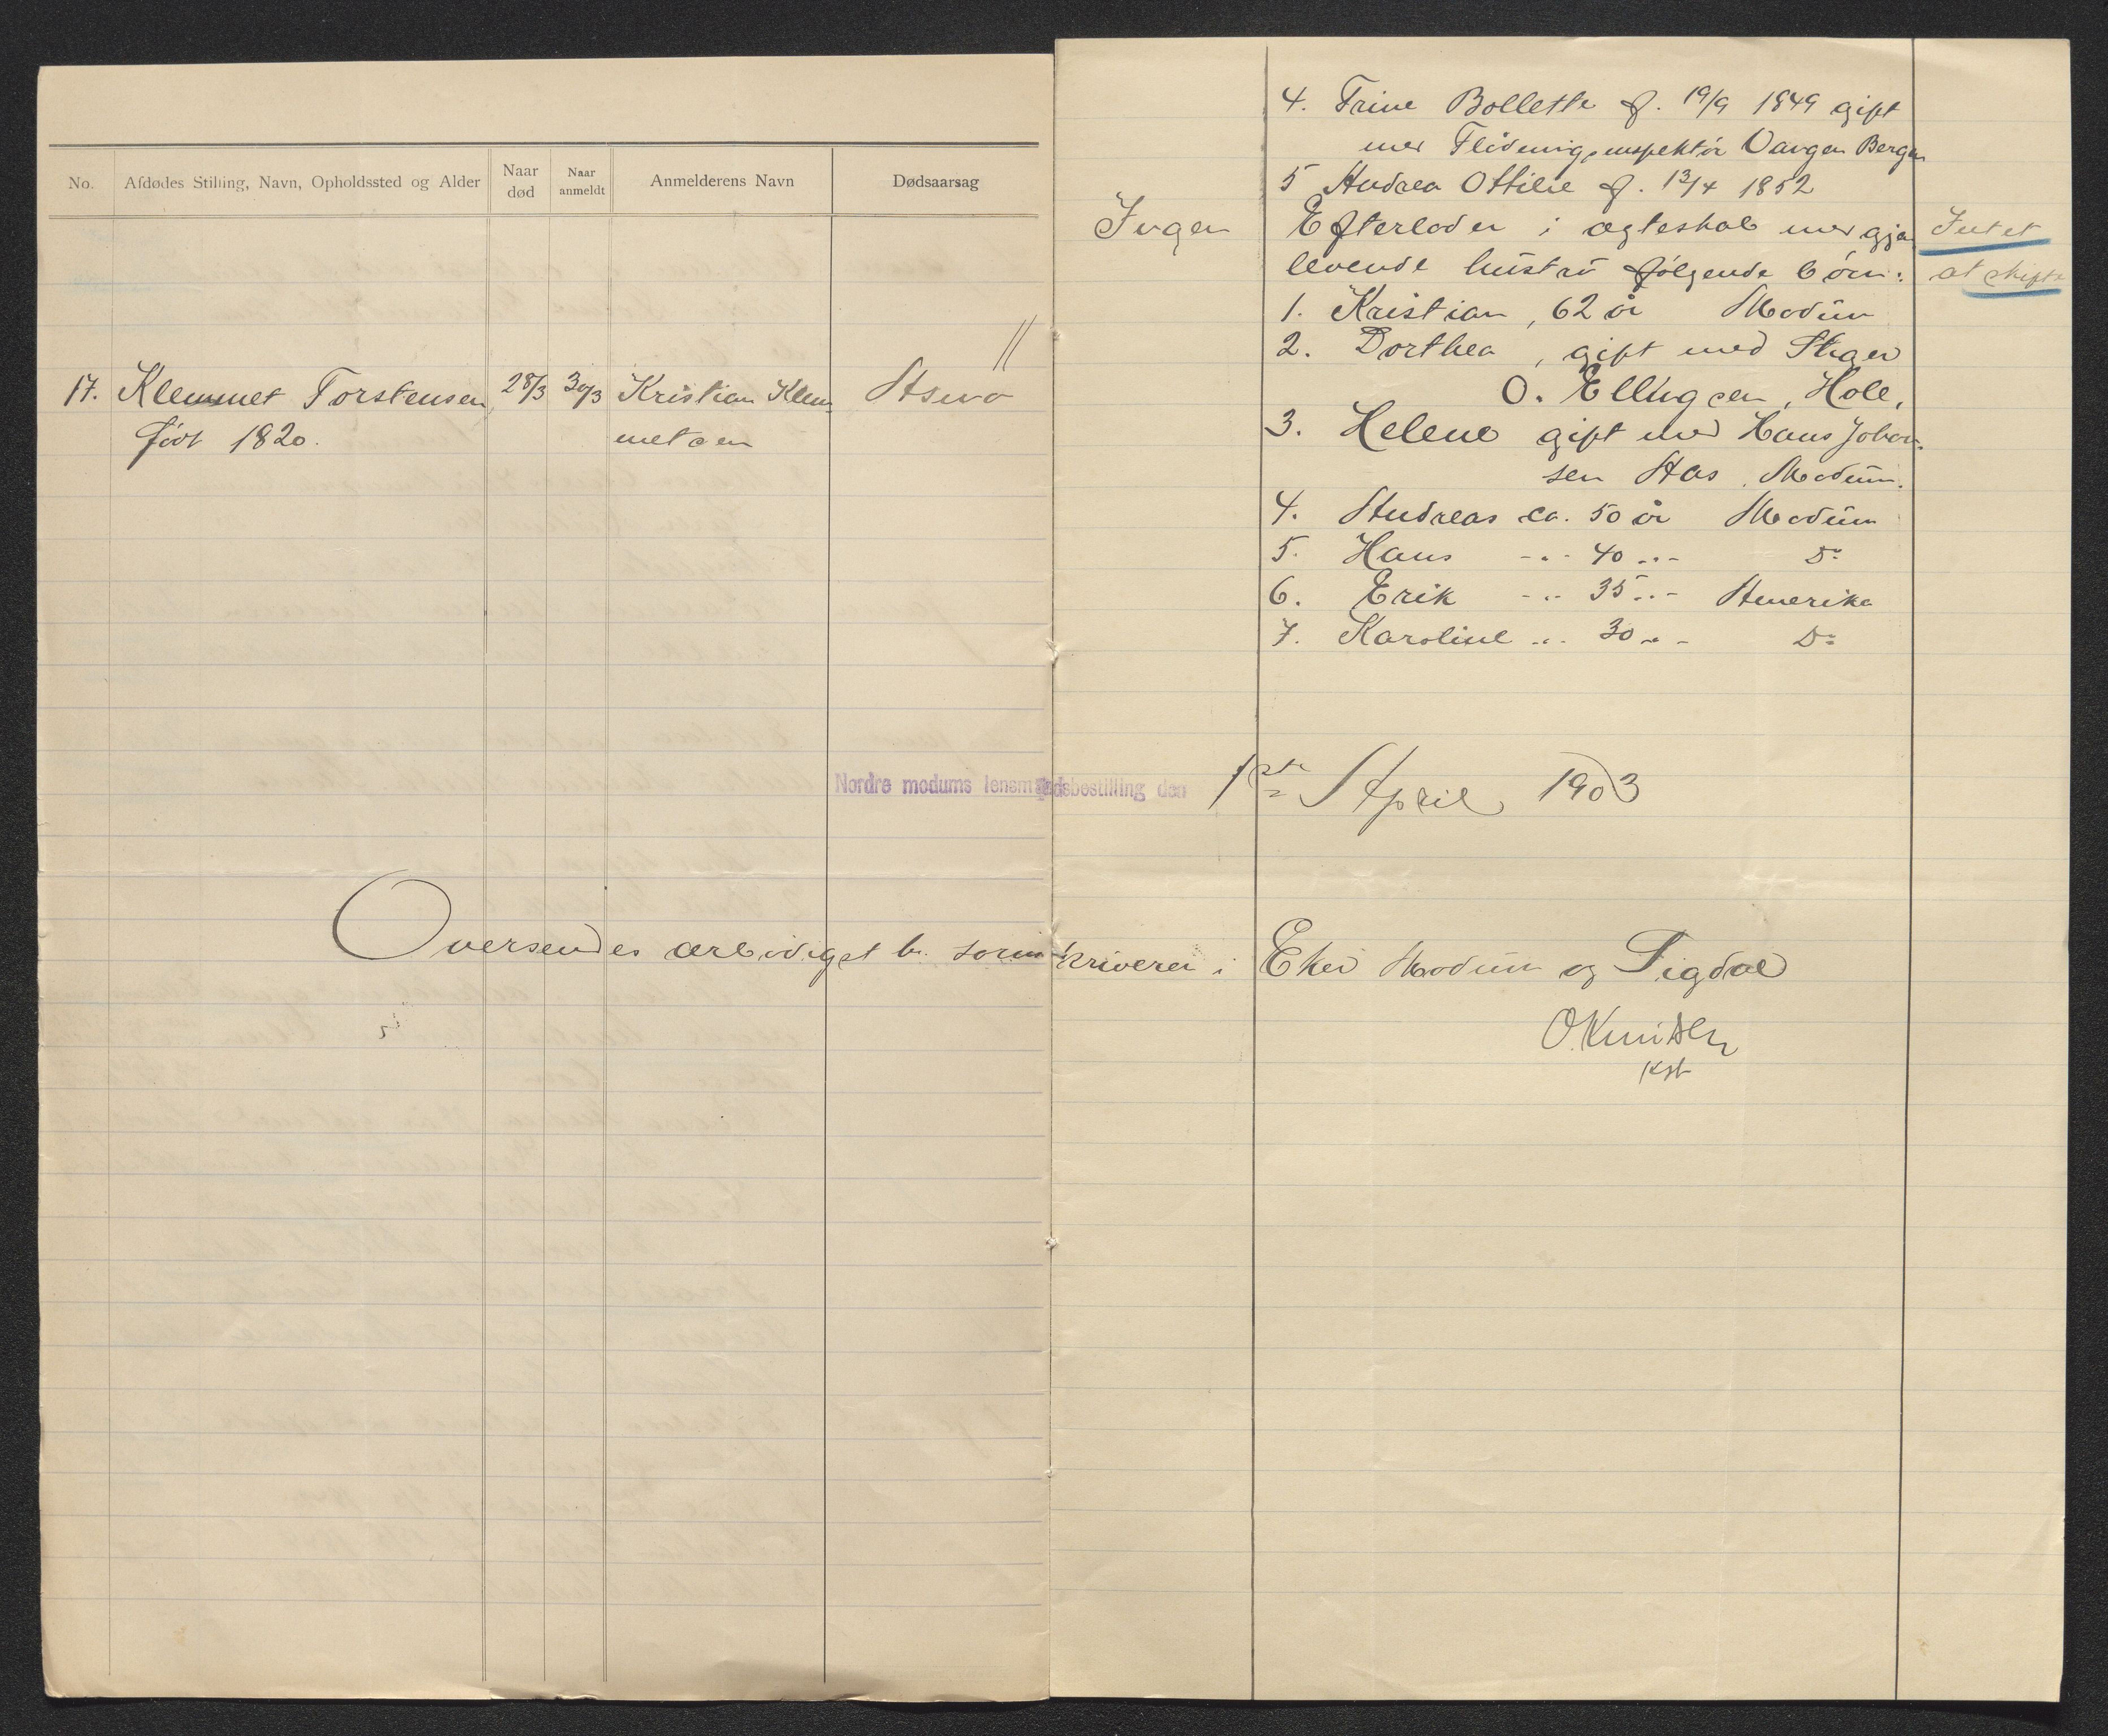 No.
Afdødes Stilling, Navn, Opholdssted og Alder
Naar død
Naar anmeldt
Anmelderens Navn
Dødsaarsag
17. Klemmet Torstensen 28/3 30/3 Kristian Klem
født 1820. metsen
"
4. Trine Bollette f. 19/9 1849 gift
med Bergen
5 Andrea Ottilie f. 13/4 1852
Ingen
Efterlader i ægteskab med gjen
levende hustru følgende børn:
Intet
at skifte
1. Kristian, 62 år Modum
2. Dorthea, gift med
O. Ellingsen, Hole.
3. Helene gift med Hans Johan-
sen Aas. Modum.
4. Andreas ca. 50 år Modum
5. Hans -„- 40 -„- Do
6. Erik -„- 35 -„- Amerika
7. Karoline -„- 30 -„- Do
Nordre modums lensmandsbestilling den 1ste April 1903
Oversendes ærbødigst hr. sorenskriveren i Eker Modum og Sigdal
O. Knudsen
kst